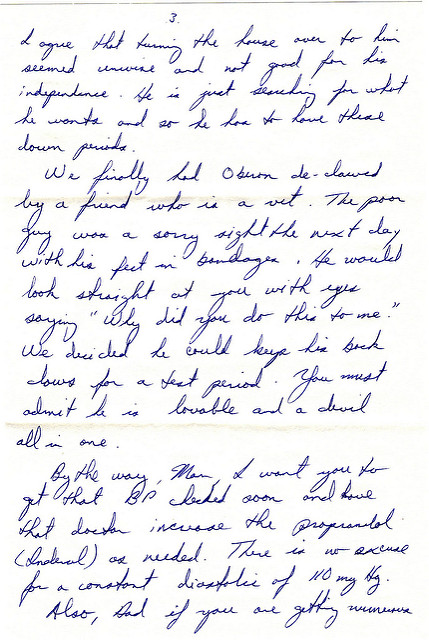 3.
I agree that turning the house over to him
seemed unwise and not good for his
independence. He is just searching for what
he wants and so he has to have these
down periods.
We finally had Oberon de-clawed
by a friend who is a vet. The poor
guy was a sorry sight the next day
with his feet in bandages. He would
look straight at you with eyes
saying "Why did you do this to me."
We decided he could keep his back
claws for a test period. You must
admit he is lovable and a devil
all in one.
By the way, Mom, I want you to
get that BP checked soon and have
that doctor increase the propranolol
(Inderal) as needed. There is no excuse
for a constant diastolic of 110 my Hg.
Also, Dad if you are getting numerous